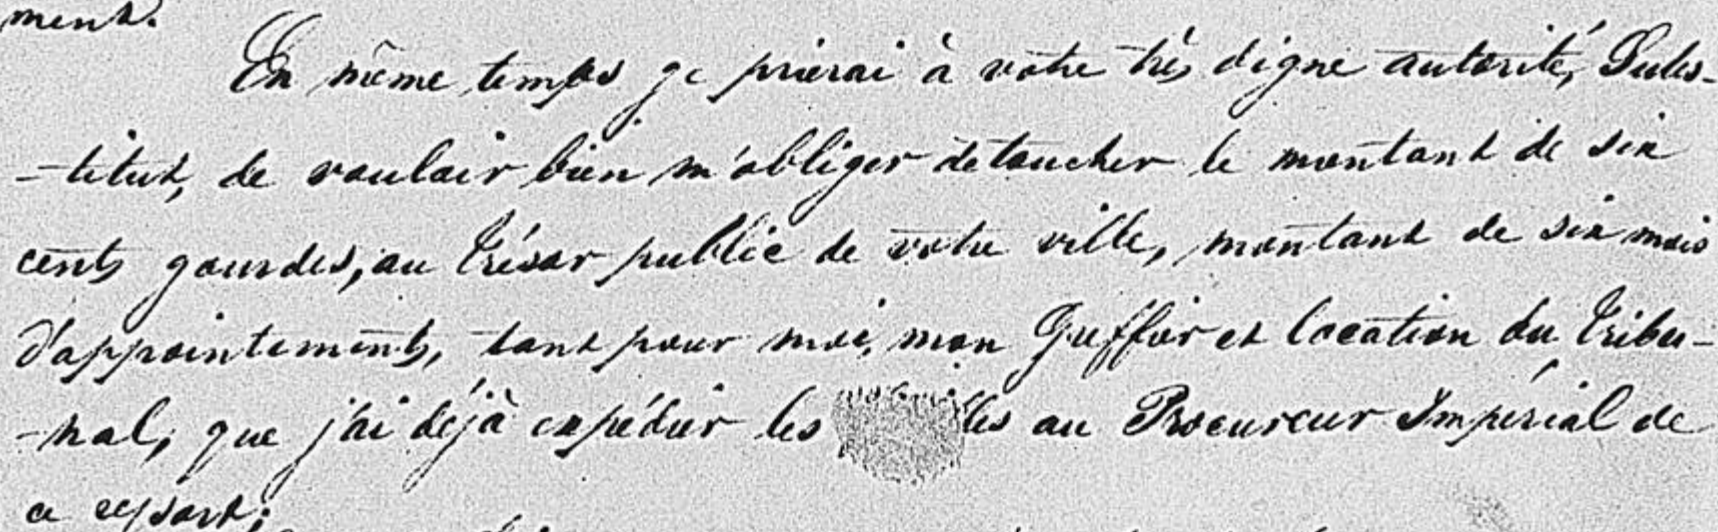 ment.
En même temps je prierai à votre très digne autorité, Subs-
-titut, de vouloir bien m'obliger de toucher le montant de six
cents gourdes, au trésor public de votre ville, montant de six mois
d'appointements, tant pour moi, mon Greffier et location du tribu-
-nal, que j'ai déjà expédier les au Procureur Impérial de
ce ressort;